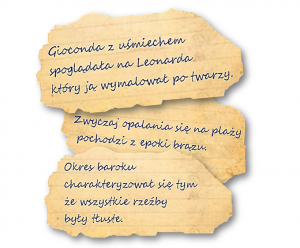 Gioconda z uśmiechem
spoglądała na Leonarda
który ją wymalował po twarzy.
Zwyczaj opalania się na plaży
pochodzi z epoki brązu.
Okres baroku
charakteryzował się tym
że wszystkie rzeźby
były tłuste.